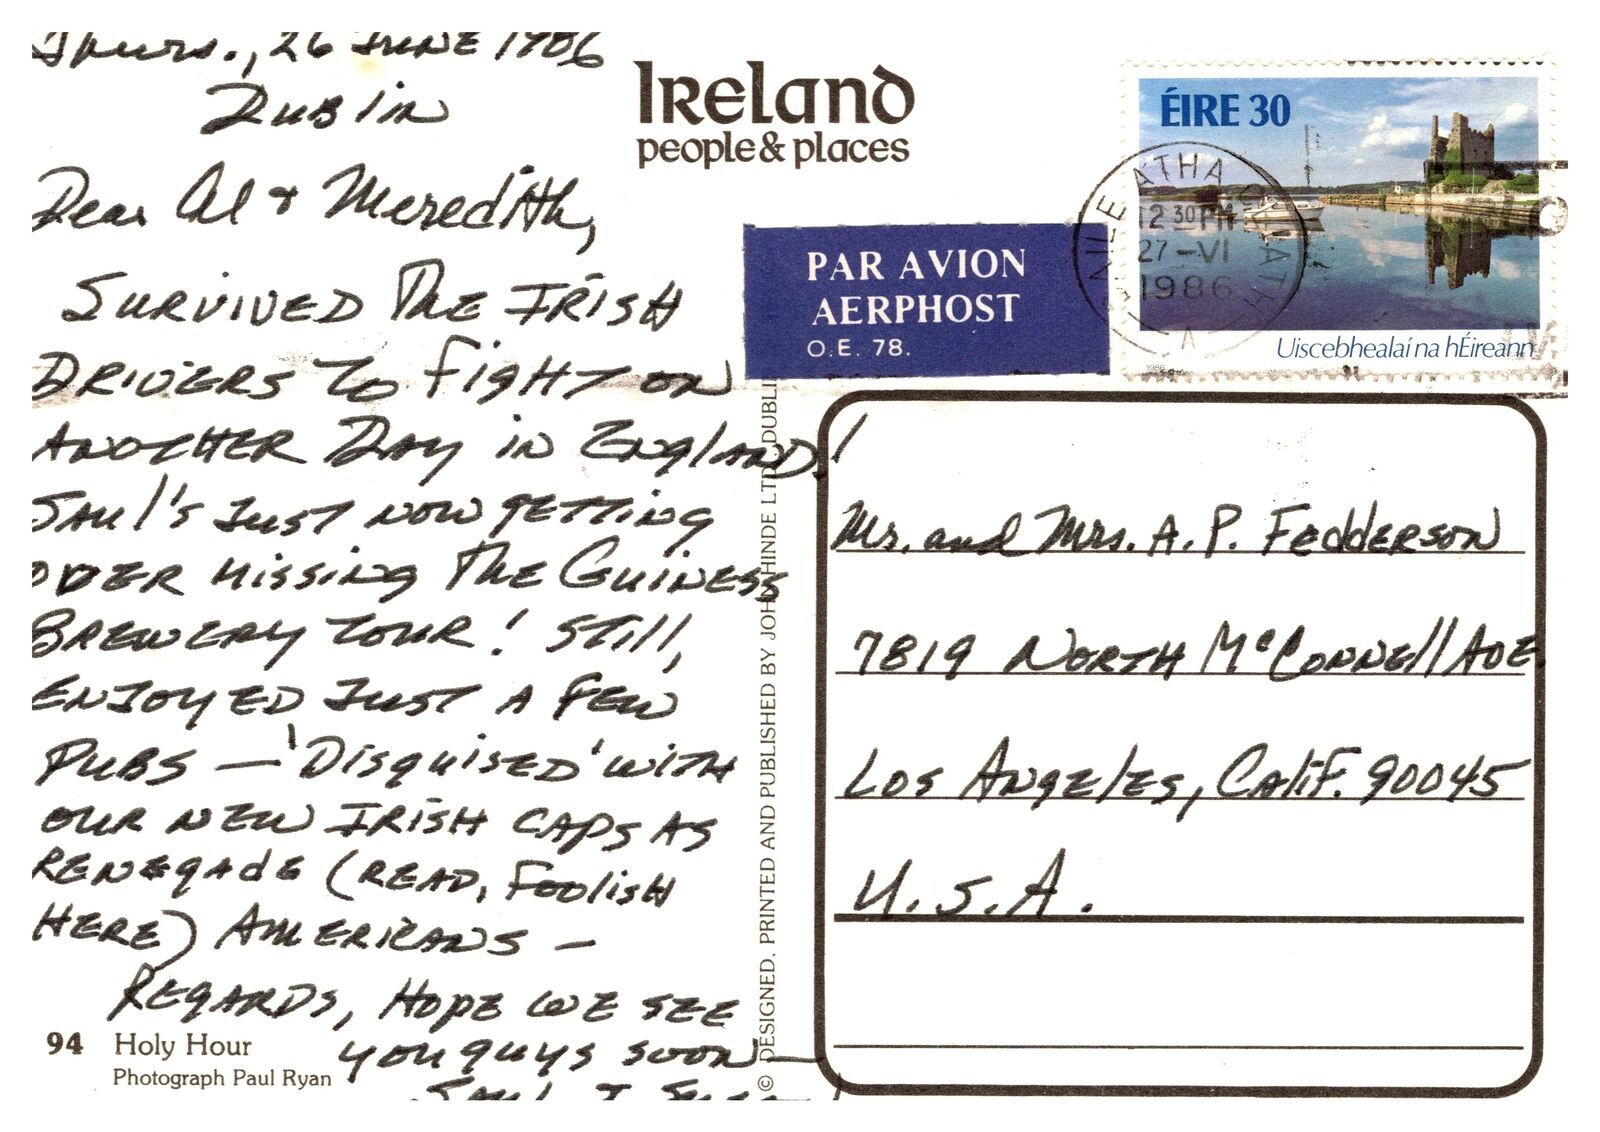 Thurs., 26 June 1986
Dublin
Dear Al & Meredith,
Survived the Irish
drivers to fight on
another day in England!
Saul's just now getting
over missing the Guiness
Brewery tour! Still,
enjoyed just a few
pubs — 'disguised' with
our new Irish caps as
renegade (read, foolish
here) Americans —
Regards, hope we see
you guys soon —
Saul &
94 Holy Hour
Photograph Paul Ryan
Ireland
people & places
© DESIGNED, PRINTED AND PUBLISHED BY JOHN HINDE LTD. DUBLI
PAR AVION
AERPHOST
O.E. 78.
ÉIRE 30
Uiscebhealaí na hÉireann
1986
ATHA CLIATH
12 30 PM
27-VI
1986
A
Mr. and Mrs. A. P. Fedderson
7819 North McConnell Ave.
Los Angeles, Calif. 90045
U.S.A.